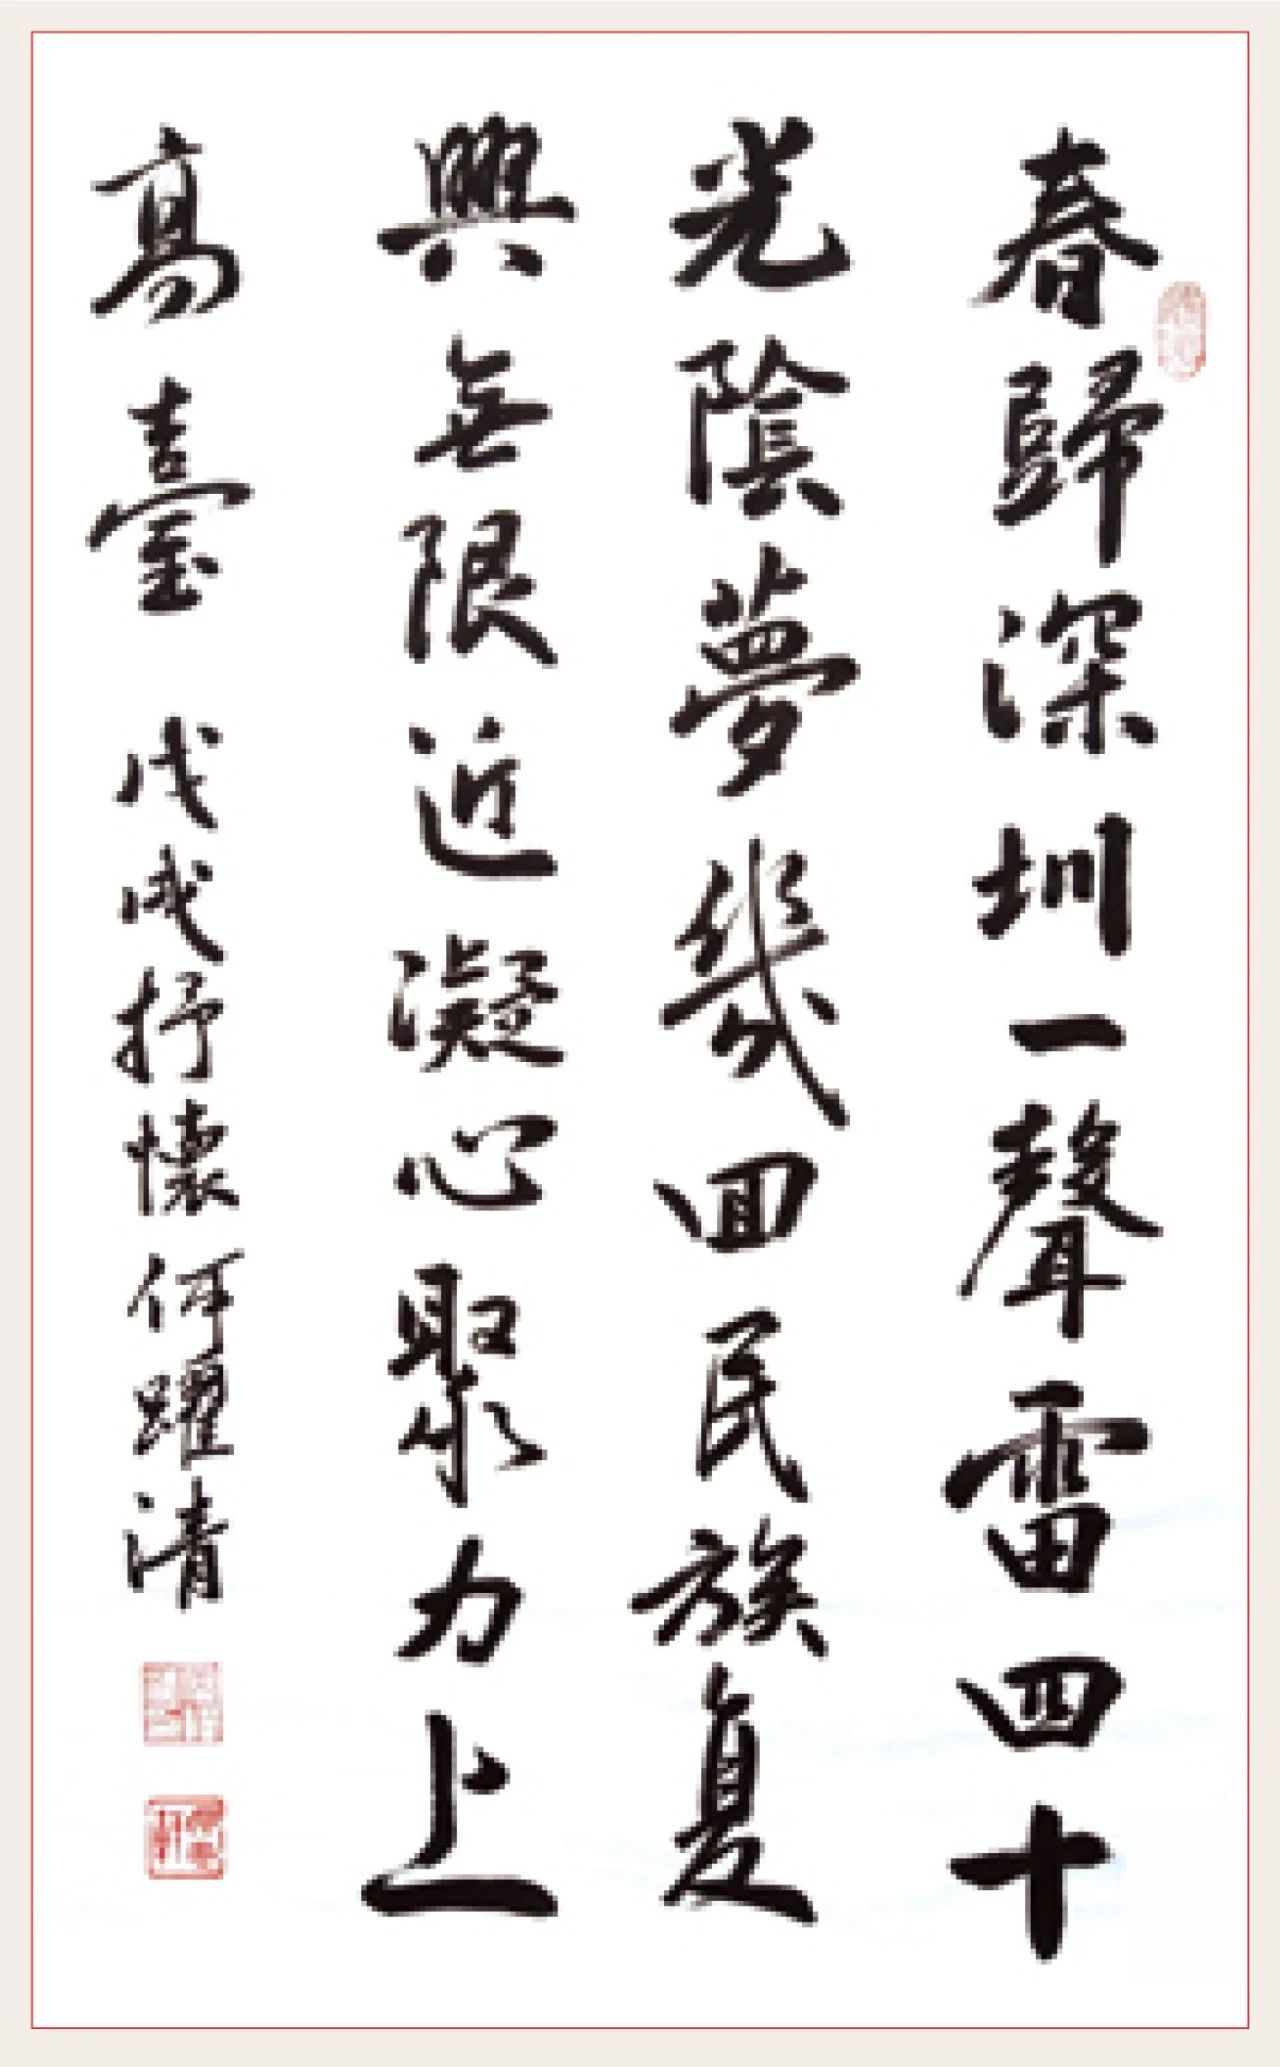 春歸深圳一聲雷四十
光陰夢幾回民族复
興無限近凝心聚力上
高臺 戊戌抒懷何躍清